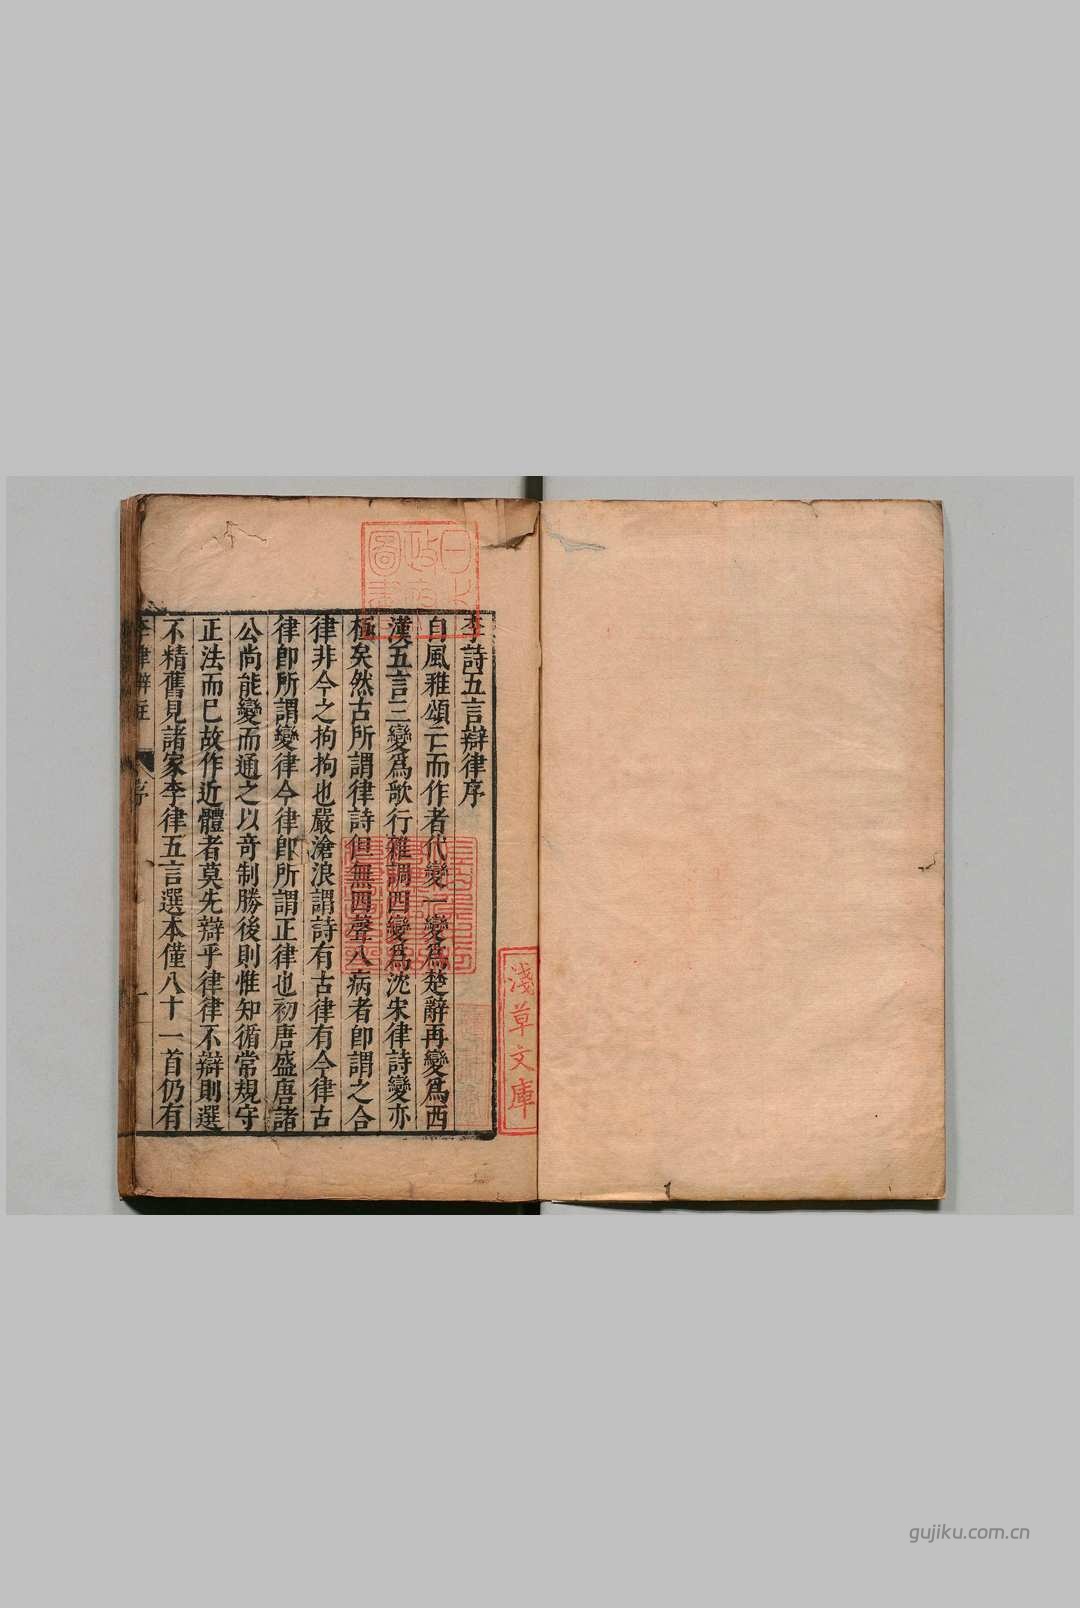 李詩五言辯律序
自風雅頌亡而作者代變一變爲楚辭再變爲西
漢五言三變爲歌行雜調四變爲沈宋律詩變亦
極矣然古所謂律詩但無四聲八病者卽謂之合
律非今之拘拘也嚴滄浪謂詩有古律有今律古
律卽所謂變律今律卽所謂正律也初唐盛唐諸
公尚能變而通之以竒制勝後則惟知循常規守
正法而已故作近體者莫先辯乎律律不辯則選
不精舊見諸家李律五言選本僅八十一首仍有
李律辯註 序 一
日本政府圖書
淺草文庫
gujiku.com.cn